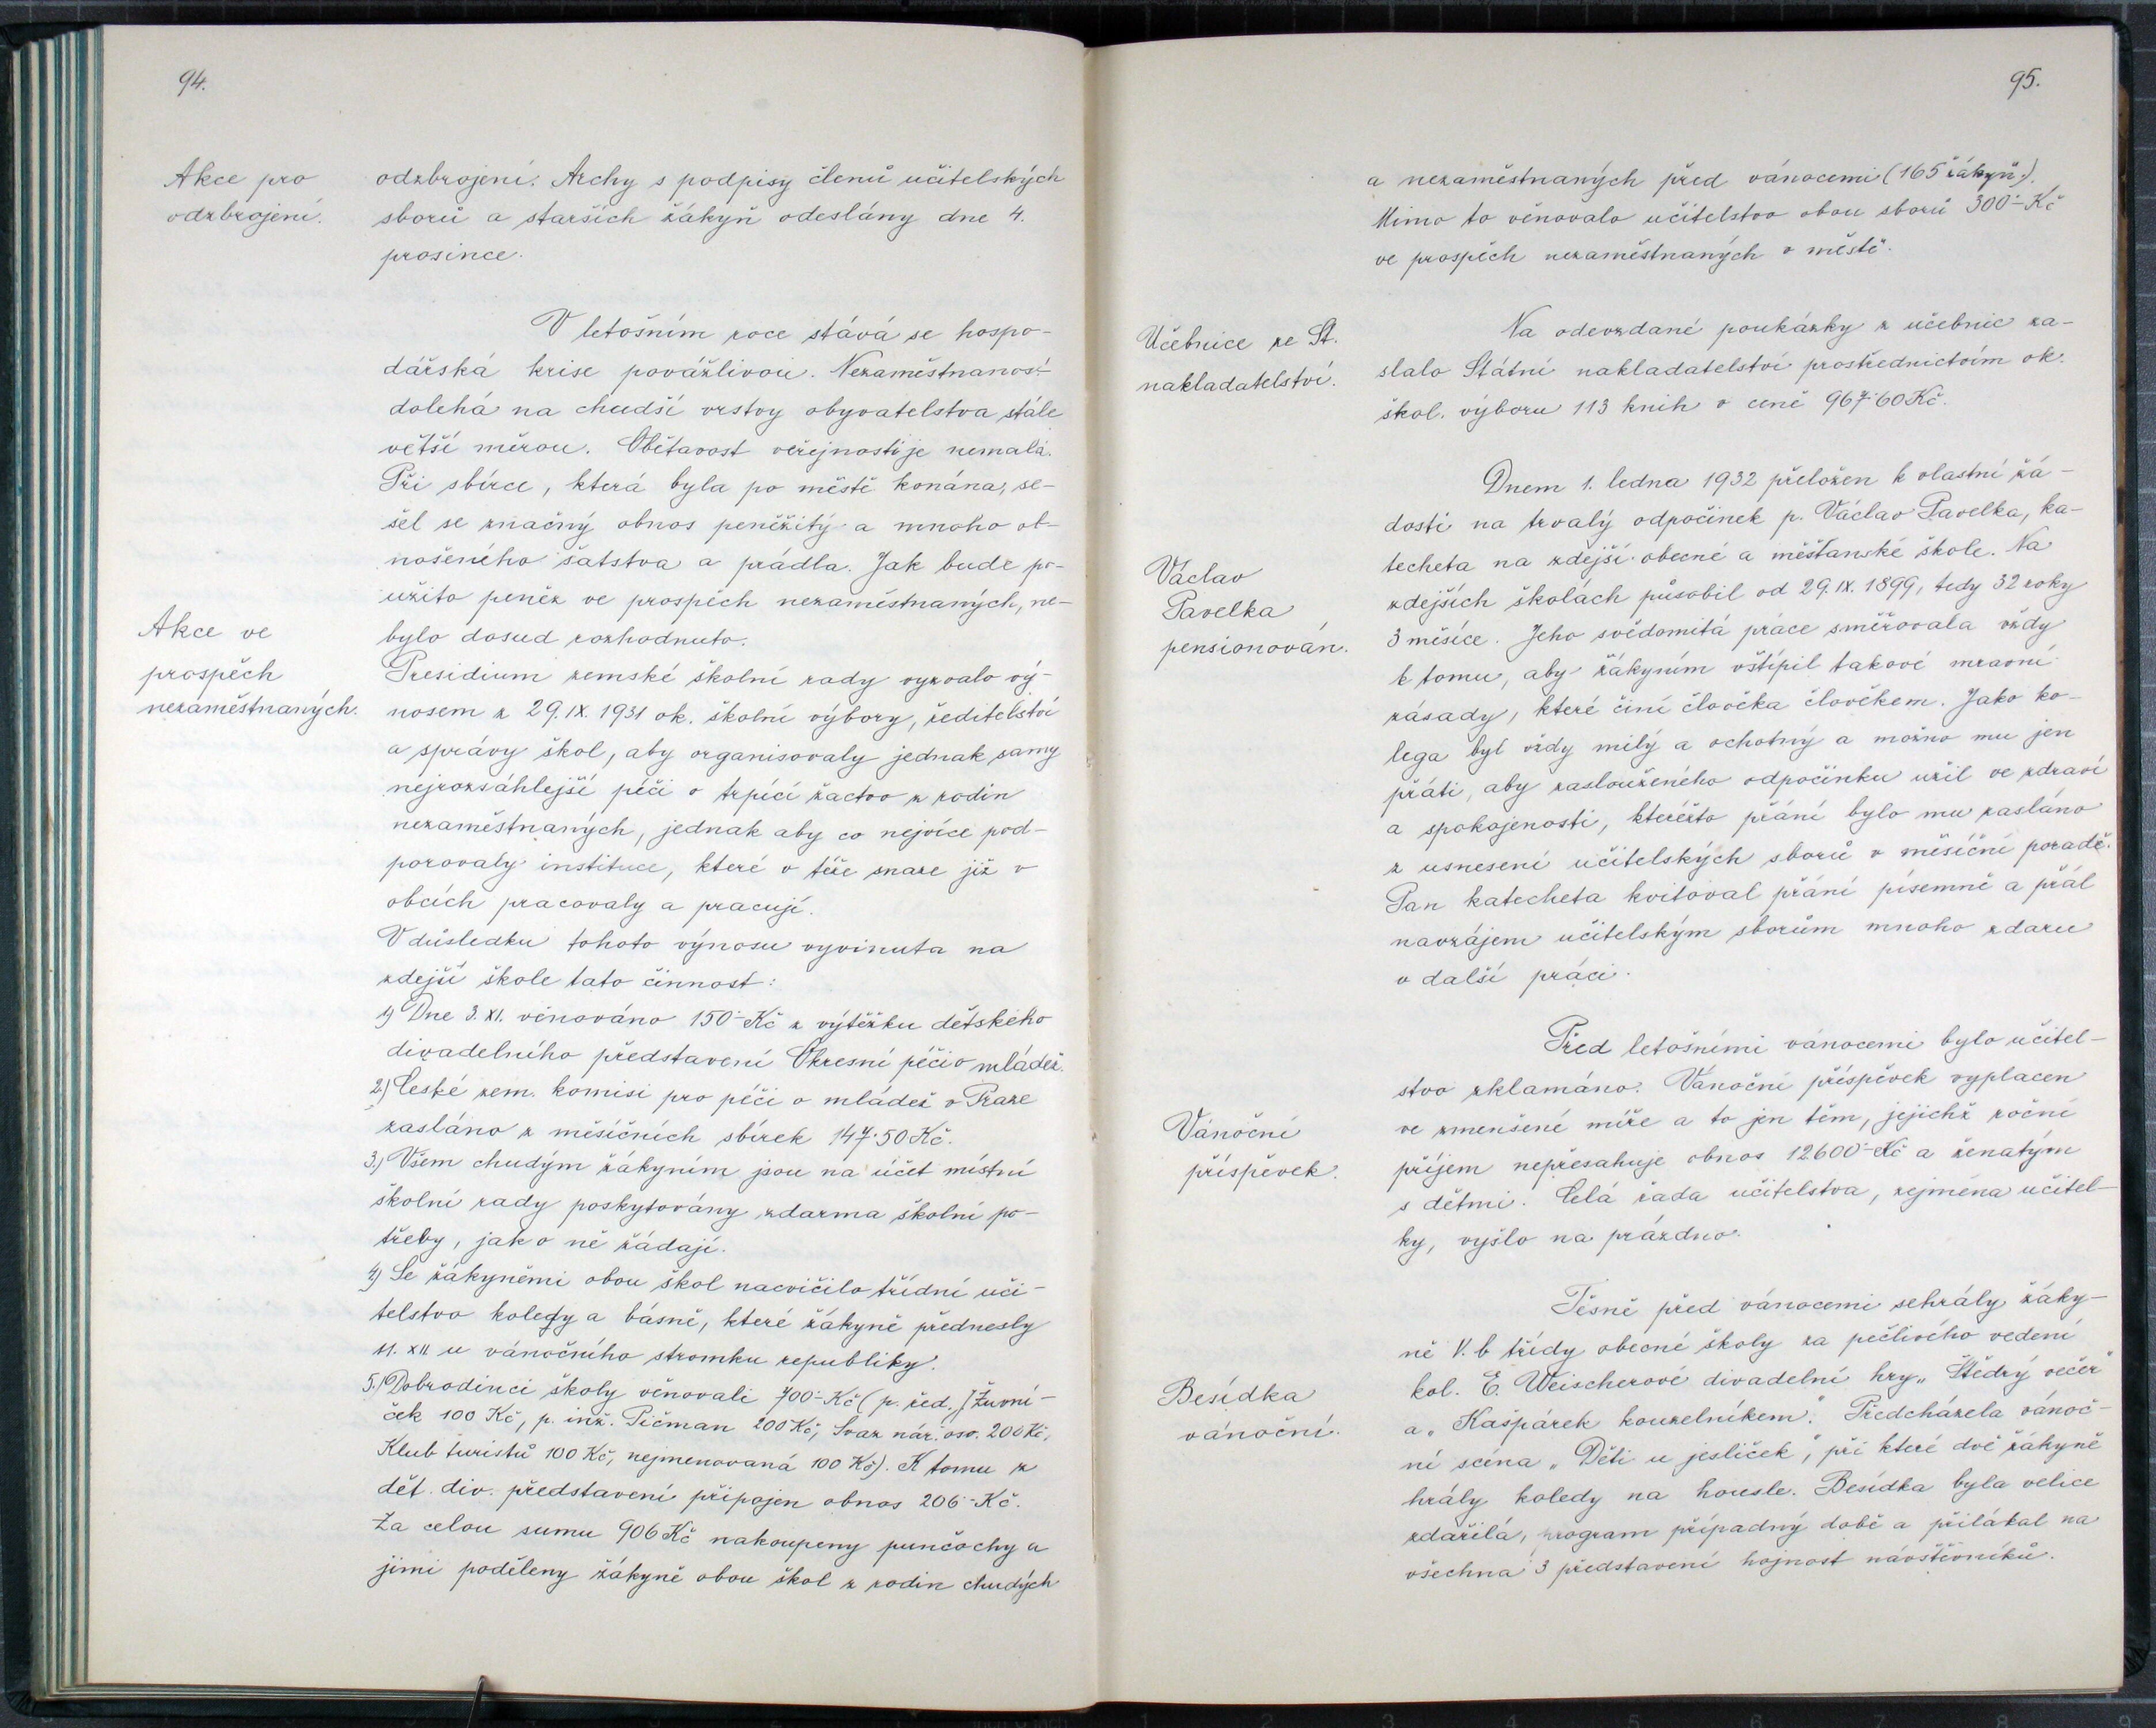 94.
Akce pro
odzbrojení.
odzbrojení. Archy s podpisy členů učitelských
sborů a starších žákyň odeslány dne 4.
prosince.
V letošním roce stává se hospo-
dářská krise povážlivou. Nezaměstnanost
doléhá na chudší vrstvy obyvatelstva stále
větší měrou. Obětavost veřejnosti je nemalá.
Při sbírce, která byla po městě konána, se-
šel se značný obnos peněžitý a mnoho ob-
nošeného šatstva a prádla. Jak bude po-
užito peněz ve prospěch nezaměstnaných, ne-
bylo dosud rozhodnuto.
Akce ve
prospěch
nezaměstnaných.
Presidium zemské školní rady vyzvalo vý-
nosem z 29.IX.1931 ok. školní výbory, ředitelství
a správy škol, aby organisovaly jednak samy
nejrozsáhlejší péči o trpící žactvo z rodin
nezaměstnaných, jednak aby co nejvíce pod-
porovaly instituce, které v téže snaze již v
obcích pracovaly a pracují.
V důsledku tohoto výnosu vyvinuta na
zdejší škole tato činnost:
1) Dne 3.XI. věnováno 150·- Kč z výtěžku dětského
divadelního představení Okresní péči o mládež.
2.) České zem. komisi pro péči o mládež v Praze
zasláno z měsíčních sbírek 147·50 Kč.
3.) Všem chudým žákyním jsou na účet místní
školní rady poskytovány zdarma školní po-
třeby, jak o ně žádají.
4) Se žákyněmi obou škol nacvičilo třídní uči-
telstvo koledy a básně, které žákyně přednesly
11.XII u vánočního stromku republiky.
5.) Dobrodinci školy věnovali 700·- Kč (p. řed. J. Žurní-
ček 100 Kč, p. inž. Pičman 200 Kč, Svaz nár. osv. 200 Kč,
Klub turistů 100 Kč, nejmenovaná 100 Kč). K tomu z
dět. div. představení připojen obnos 206·- Kč.
Za celou sumu 906 Kč nakoupeny punčochy a
jimi poděleny žákyně obou škol z rodin chudých
95.
a nezaměstnaných před vánocemi (165 žákyň).
Mimo to věnovalo učitelstvo obou sborů 300·- Kč
ve prospěch nezaměstnaných v městě.
Učebnice ze St.
nakladatelství.
Na odevzdané poukázky z učebnic za-
slalo Státní nakladatelství prostřednictvím ok.
škol. výboru 113 knih v ceně 967·60 Kč.
Dnem 1. ledna 1932 přeložen k vlastní žá-
dosti na trvalý odpočinek p. Václav Pavelka, ka-
techeta na zdejší obecné a měšťanské škole. Na
Václav
Pavelka
pensionován.
zdejších školách působil od 29.IX.1899, tedy 32 roky
3 měsíce. Jeho svědomitá práce směřovala vždy
k tomu, aby žákyním vštípil takové mravní
zásady, které činí člověka člověkem. Jako ko-
lega byl vždy milý a ochotný a možno mu jen
přáti, aby zaslouženého odpočinku užil ve zdraví
a spokojenosti, kteréžto přání bylo mu zasláno
z usnesení učitelských sborů v měsíční poradě.
Pan katecheta kvitoval přání písemně a přál
navzájem učitelským sborům mnoho zdaru
v další práci.
Před letošními vánocemi bylo učitel-
stvo zklamáno. Vánoční příspěvek vyplacen
Vánoční
příspěvek.
ve zmenšené míře a to jen těm, jejichž roční
příjem nepřesahuje obnos 12600·- Kč a ženatým
s dětmi. Celá řada učitelstva, zejména učitel-
ky, vyšlo na prázdno.
Těsně před vánocemi sehrály žáky-
ně V.b třídy obecné školy za pečlivého vedení
Besídka
vánoční.
kol. E. Weischerové divadelní hry „Štědrý večer“
a „Kašpárek kouzelníkem“. Předcházela vánoč-
ní scéna „Děti u jesliček“, při které dvě žákyně
hrály koledy na housle. Besídka byla velice
zdařilá, program případný době a přilákal na
všechna 3 představení hojnost návštěvníků.